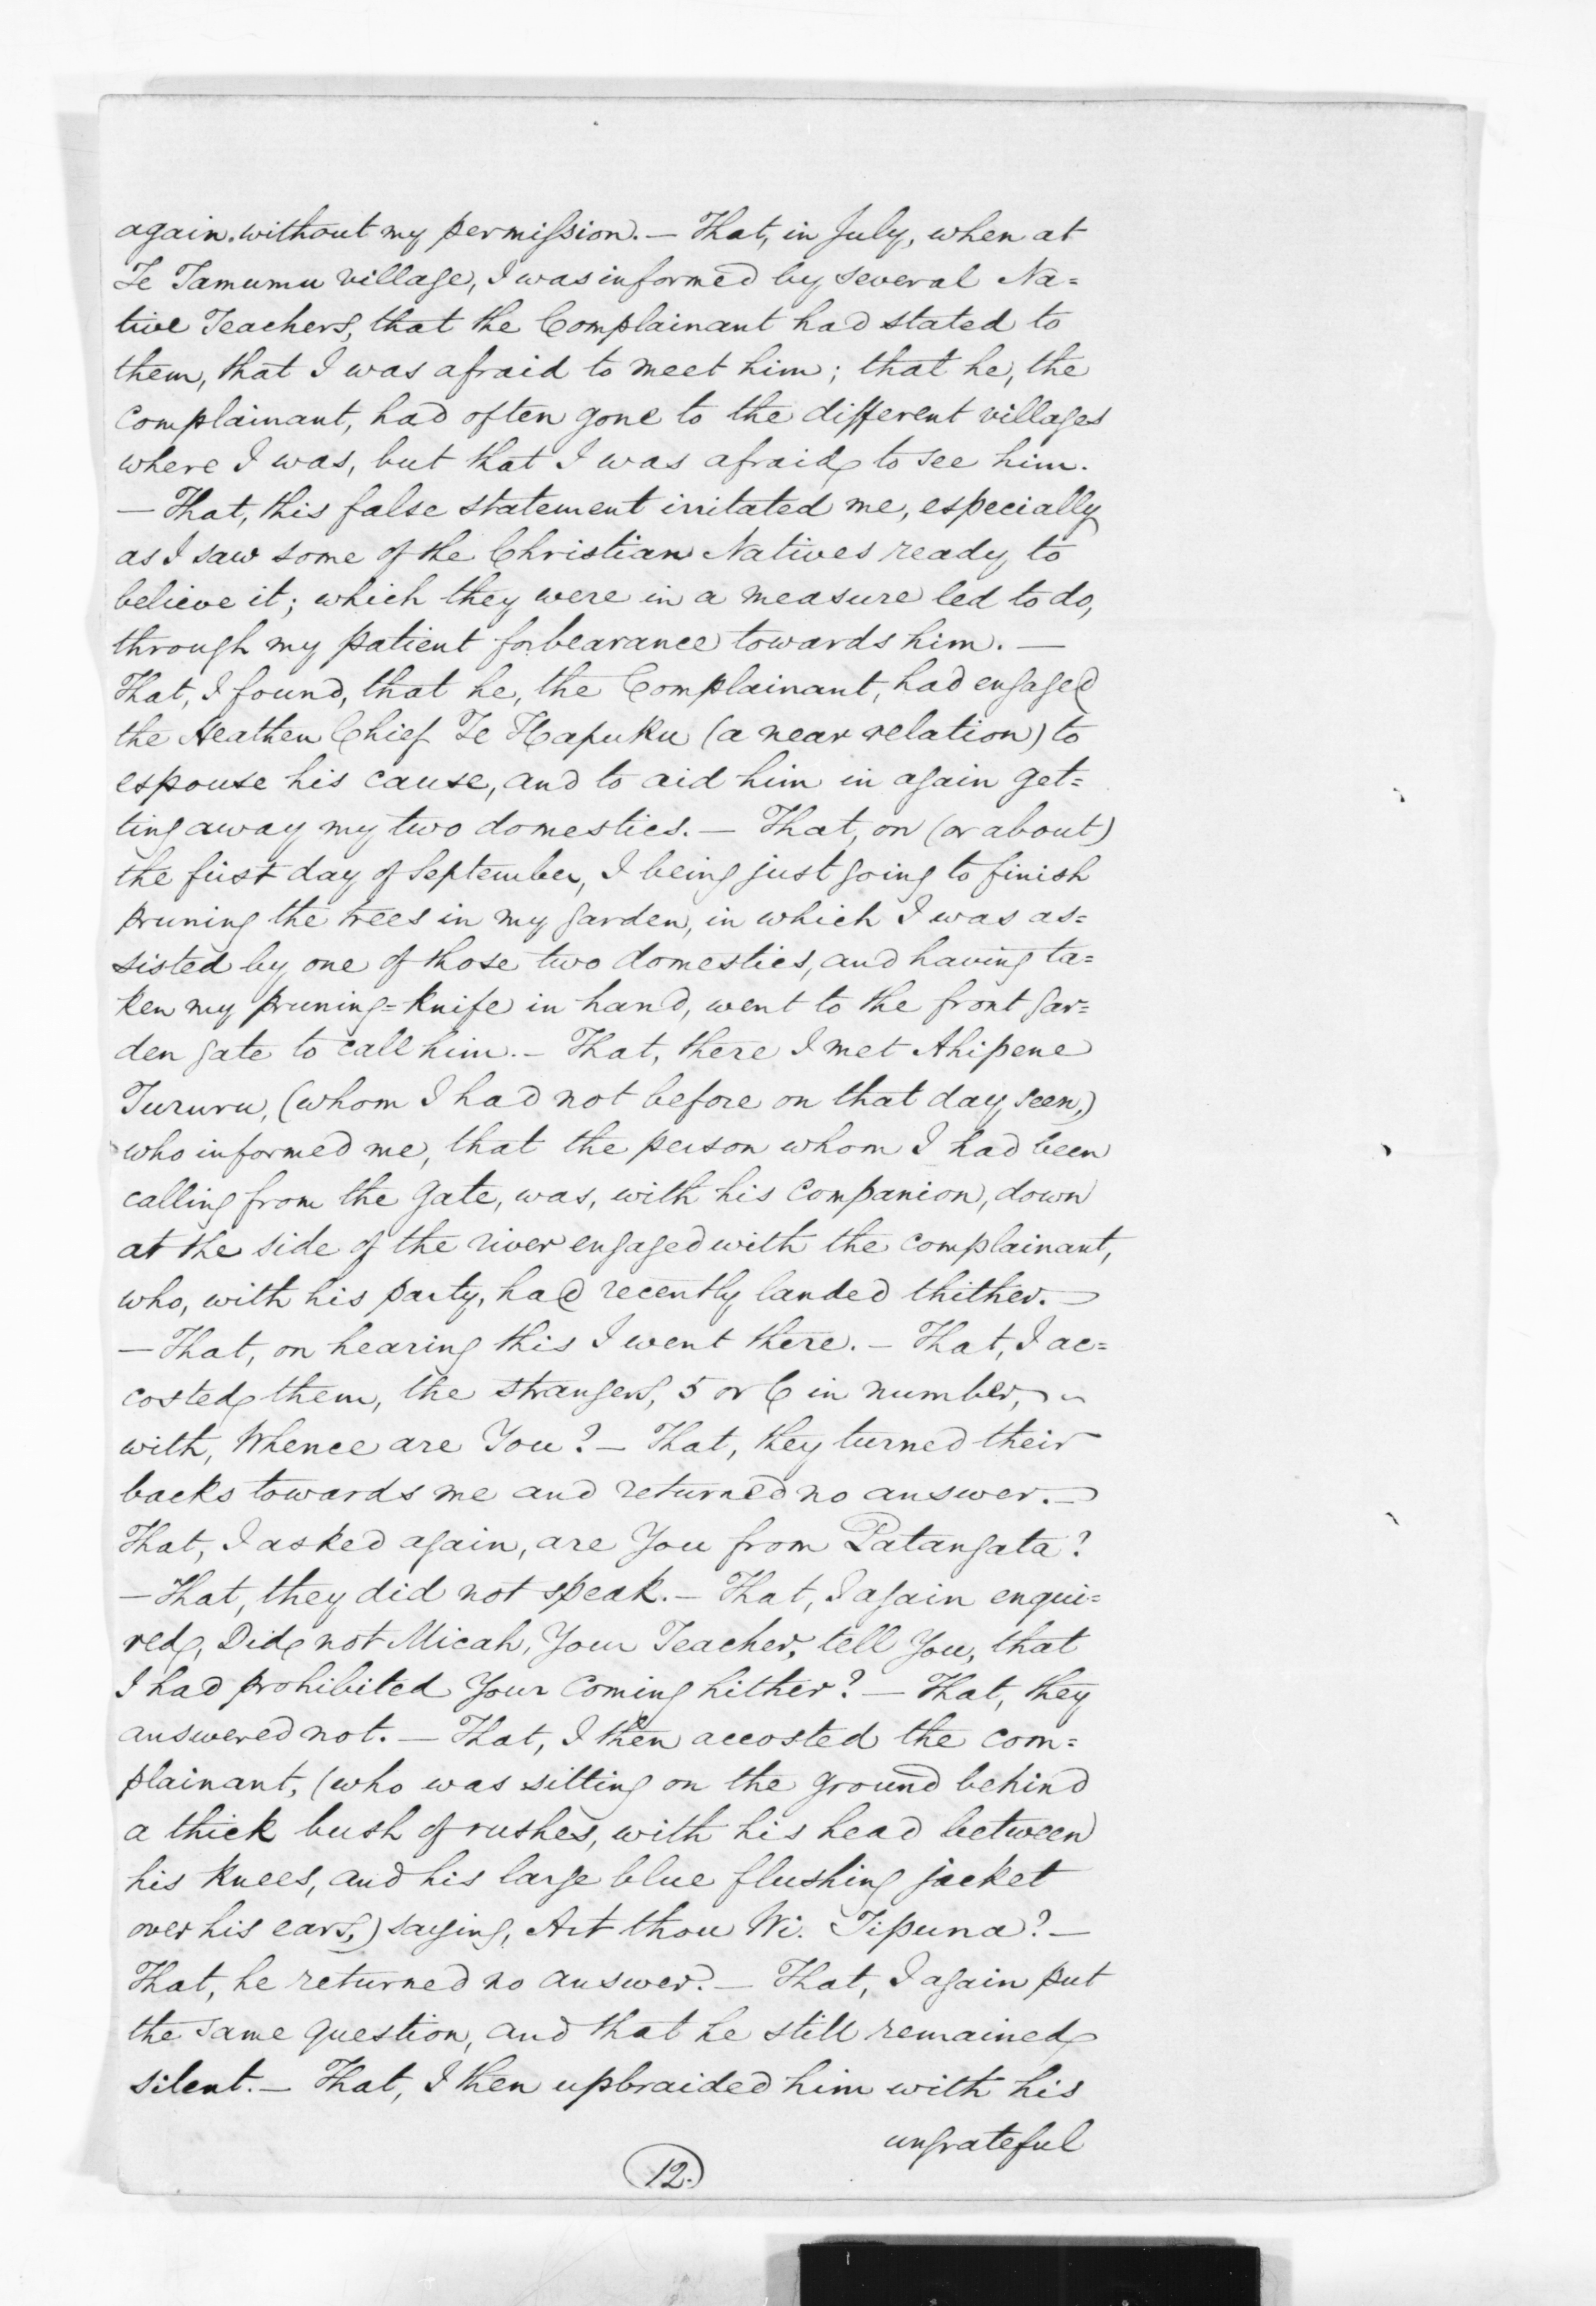 again without my permission. — That, in July, when at
Te Tamumu village, I was informed by several Na=
tive Teachers, that the Complainant had stated to
them, that I was afraid to meet him; that he, the
complainant, had often gone to the different villages
where I was, but that I was afraid to see him.
— That, this false statement irritated me, especially
as I saw some of the Christian Natives ready to
believe it; which they were in a measure led to do,
through my patient forbearance towards him. —
That, I found, that he, the Complainant, had engaged
the Heathen Chief Te Hapuku (a near relation) to
espouse his cause, and to aid him in again get=
ting away my two domestics. — That, on (or about)
the first day of September, I being just going to finish
pruning the trees in my garden, in which I was as=
sisted by one of those two domestics, and having ta=
ken my pruning=knife in hand, went to the front gar=
den gate to call him. — That, there I met Ahipene
Tururu, (whom I had not before on that day seen,)
who informed me, that the person whom I had been
calling from the gate, was, with his companion, down
at the side of the river engaged with the complainant,
who, with his party, had recently landed thither. —
— That, on hearing this I went there. — That, I ac=
costed them, the strangers, 5 or 6 in number,
with, Whence are You? — That, they turned their
backs towards me and returned no answer. —
That, I asked again, are You from Patangata?
— That, they did not speak. — That, I again enqui=
red, Did not Micah, Your Teacher, tell You, that
I had prohibited Your coming hither? — That, they
answered not. — That, I then accosted the com=
plainant, (who was sitting on the ground behind
a thick bush of rushes, with his head between
his knees, and his large blue flushing jacket
over his ears,) saying, Art thou Wi. Tipuna? —
That, he returned no answer. — That, I again put
the same question, and that he still remained
silent. — That, I then upbraided him with his
ungrateful
12.